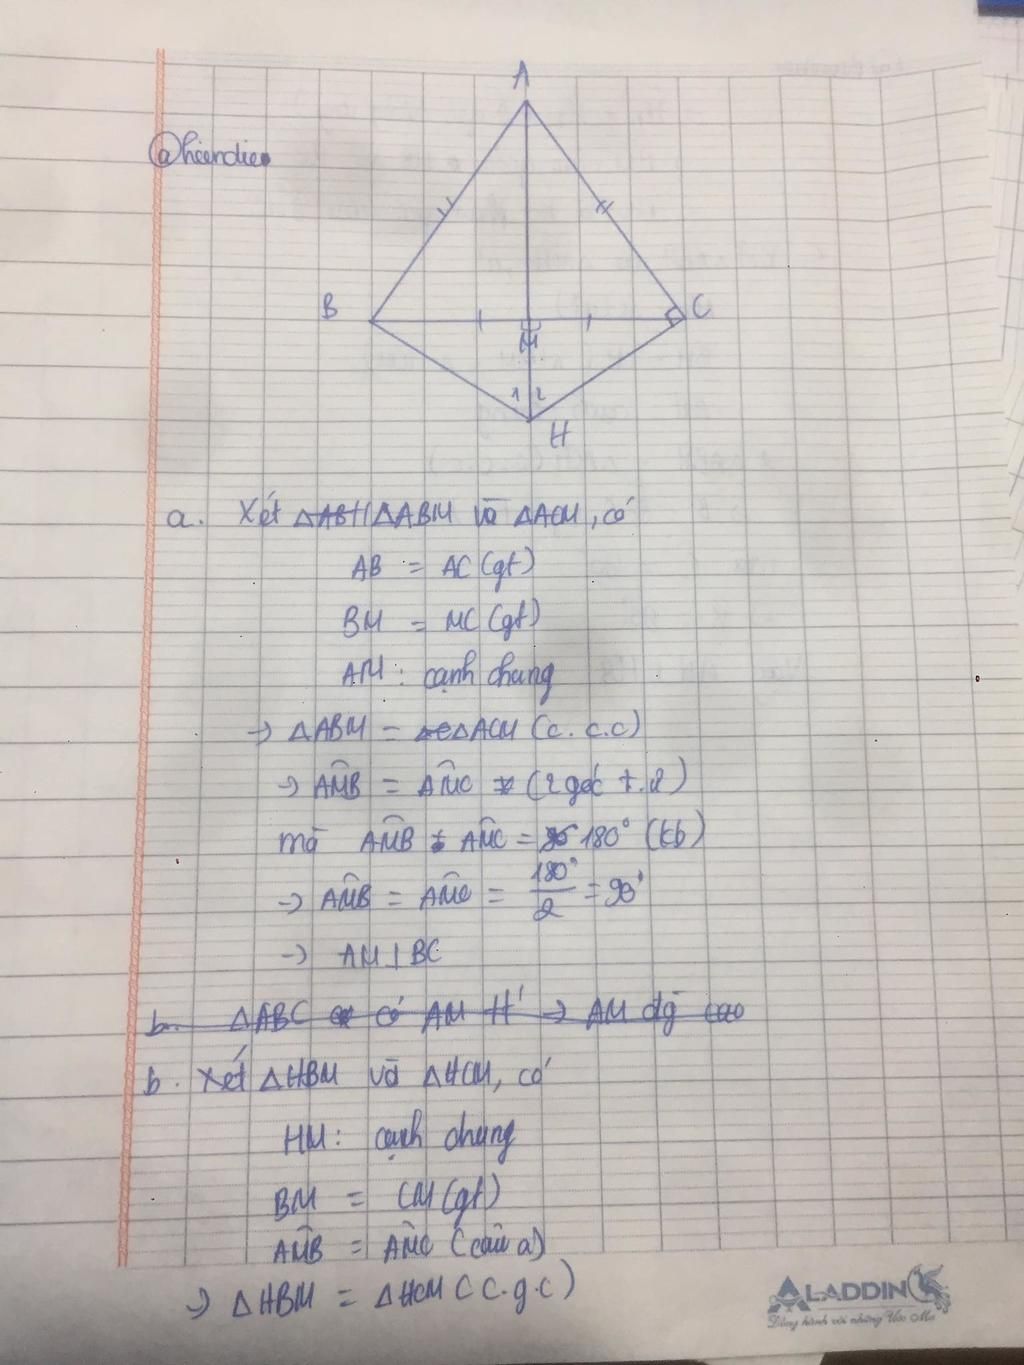 A
@hiendie
B
C
M
1 2
H
a. Xét ΔABH ΔABM và ΔACM, có
AB = AC (gt)
BM = MC (gt)
AM: cạnh chung
→ ΔABM = ΔACM (c.c.c)
→ AMB = AMC (2 góc t.ư)
mà AMB + AMC = 180° (kb)
→ AMB = AMC = 180°/2 = 90°
→ AM ⊥ BC
b. ΔABC có AM H' → AM đg cao
b. Xét ΔHBM và ΔHCM, có
HM: cạnh chung
BM = CM (gt)
AMB = AMC (câu a)
→ ΔHBM = ΔHCM (c.g.c)
ALADDIN
Đồng hành với những Ước Mơ